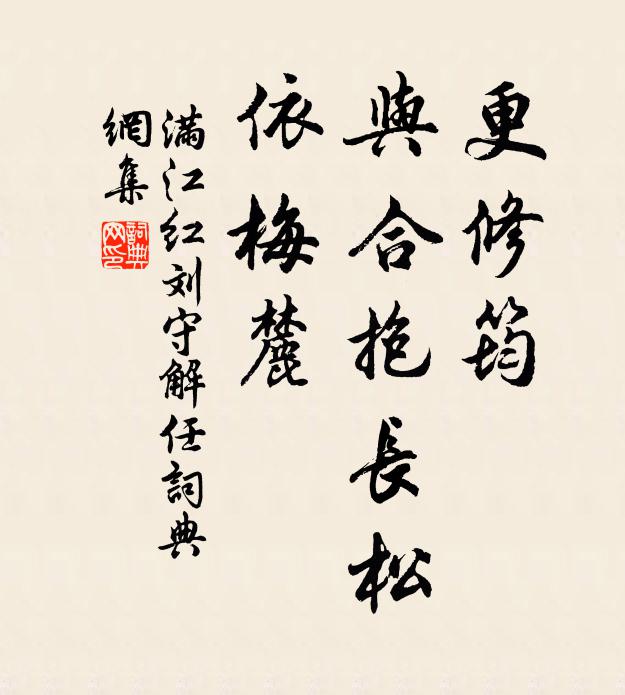 更修筠
與合抱長松
依梅麓
满江红刘守解任詞典
網集
詞典
网印